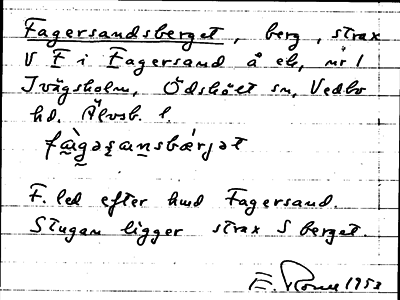 Fagersandsberget, berg, strax
V F i Fagersand å ek, nr 1
Ivägsholm, Ödskölt sn, Vedbo
hd. Älvsb. l.
fàgəṣansbærjət
F. led efter hmd Fagersand.
Stugan ligger strax S berget.
E. 1953